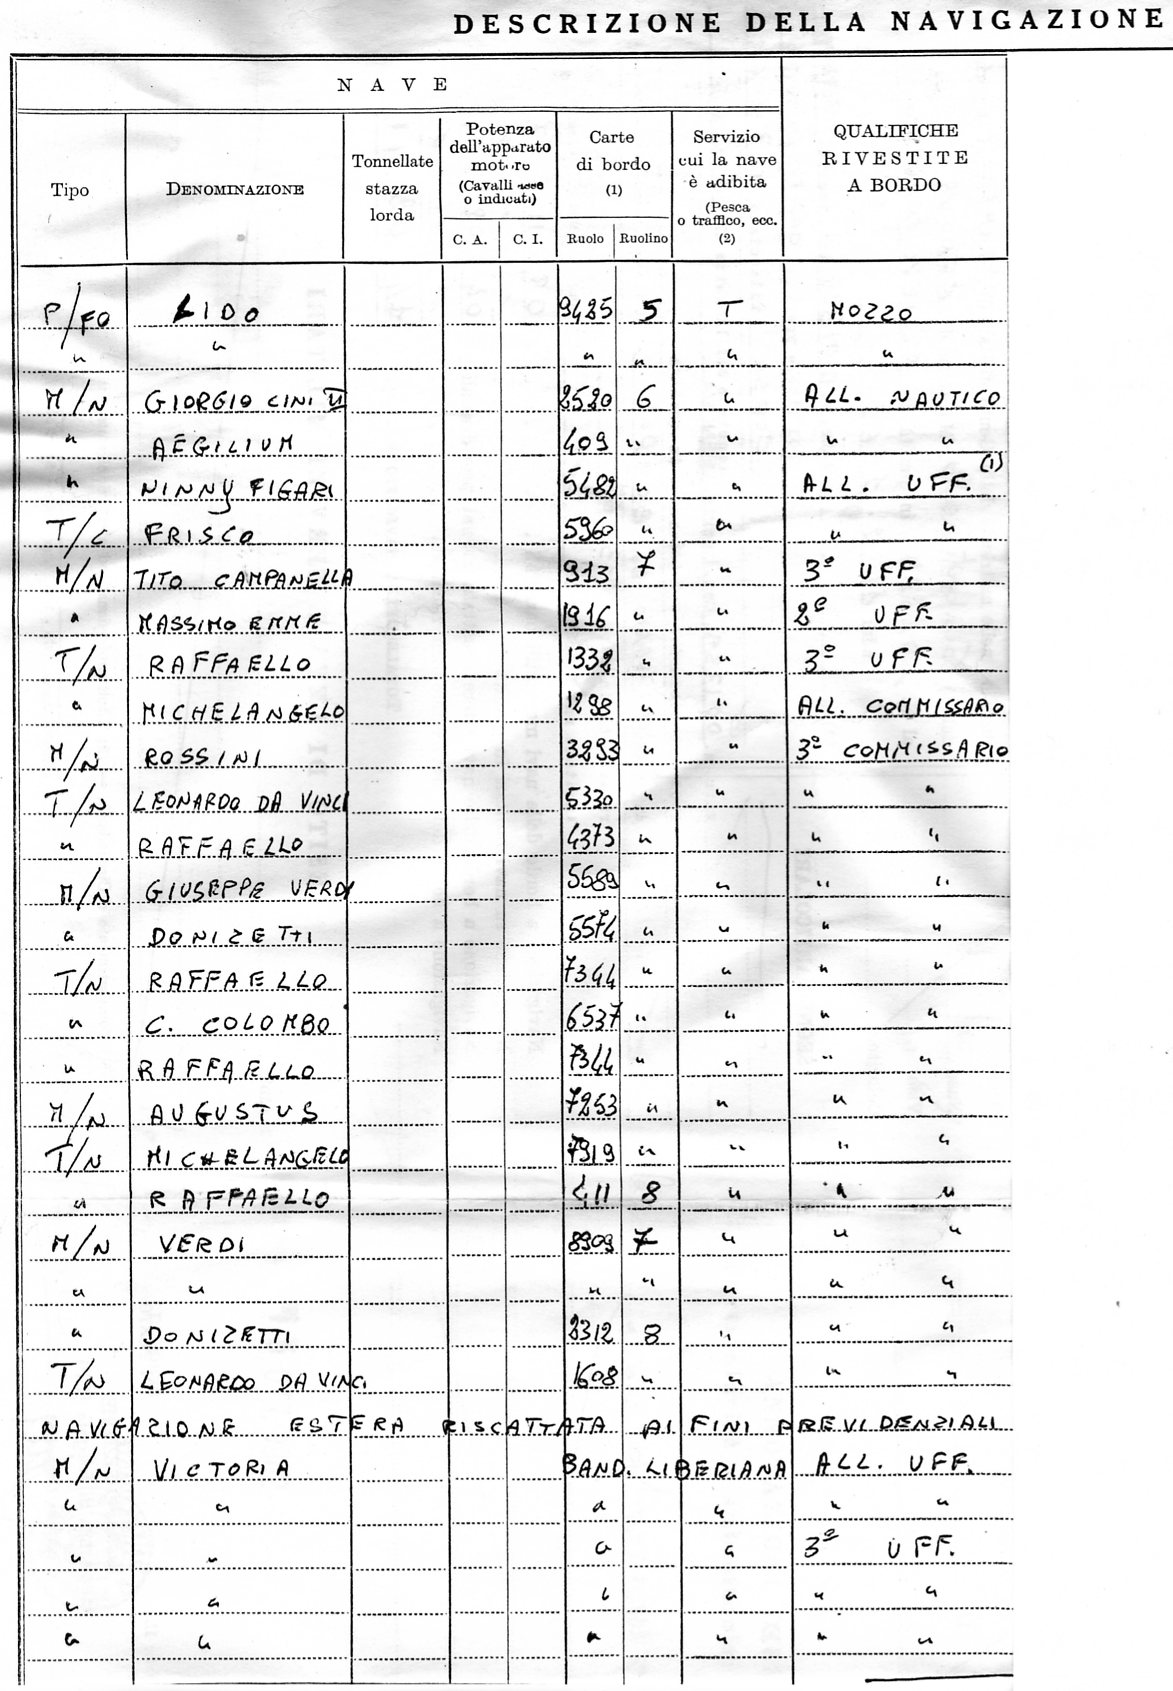 DESCRIZIONE DELLA NAVIGAZIONE
NAVE
Tipo DENOMINAZIONE Tonnellate stazza lorda Potenza dell'apparato motore (Cavalli asse o indicati) C. A. C. I. Carte di bordo (1) Ruolo Ruolino Servizio cui la nave è adibita (Pesca o traffico, ecc. (2) QUALIFICHE RIVESTITE A BORDO
P/FO LIDO 9425 5 T MOZZO
" " " " " "
M/N GIORGIO CINI II 2520 6 " ALL. NAUTICO
" AEGILIUM 409 " " " "
" NINNY FIGARI 5482 " " ALL. UFF. (1)
T/C FRISCO 5960 " " " "
M/N TITO CAMPANELLA 913 7 " 3° UFF.
" MASSIMO EMME 1916 " " 2° UFF.
T/N RAFFAELLO 1332 " " 3° UFF.
" MICHELANGELO 1298 " " ALL. COMMISSARIO
M/N ROSSINI 3293 " " 3° COMMISSARIO
T/N LEONARDO DA VINCI 5330 " " " "
" RAFFAELLO 4373 " " " "
M/N GIUSEPPE VERDI 5589 " " " "
" DONIZETTI 5574 " " " "
T/N RAFFAELLO 7344 " " " "
" C. COLOMBO 6537 " " " "
" RAFFAELLO 7344 " " " "
M/N AUGUSTUS 7253 " " " "
T/N MICHELANGELO 7919 " " " "
" RAFFAELLO 411 8 " " "
M/N VERDI 8909 7 " " "
" " " " " " "
" DONIZETTI 2312 8 " " "
T/N LEONARDO DA VINCI 1608 " " " "
NAVIGAZIONE ESTERA RISCATTATA AI FINI PREVIDENZIALI
M/N VICTORIA BAND. LIBERIANA ALL. UFF.
" " " " " "
" " " " 3° UFF.
" " " " " "
" " " " " "